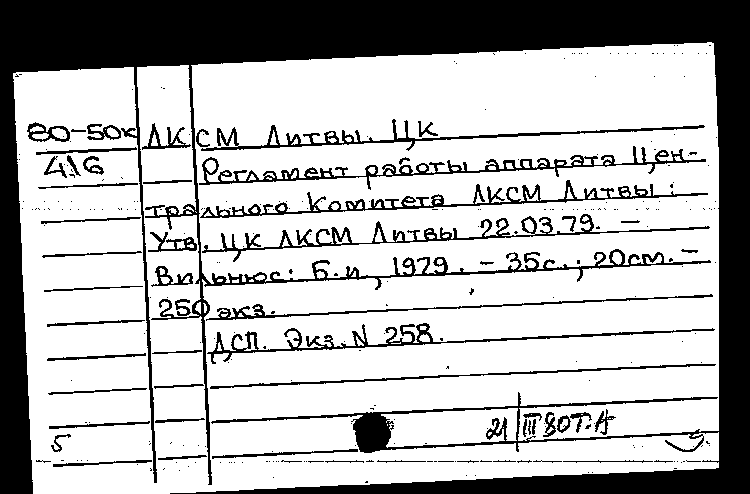 80-50к ЛКСМ Литвы. ЦК
416 Регламент работы аппарата Цен-
трального Комитета ЛКСМ Литвы:
Утв. ЦК ЛКСМ Литвы 22.03.79. –
Вильнюс: Б.и., 1979. – 35с.; 20см. –
250 экз.
ДСП. Экз. N 258.
5 21 III 80 Т.А